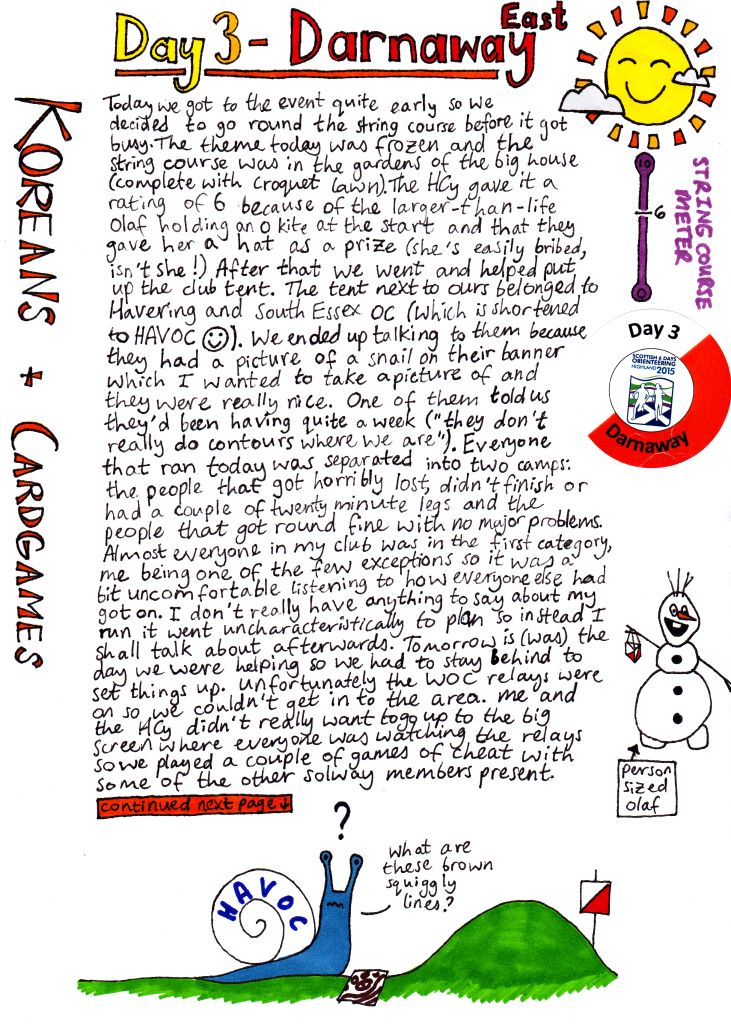 Day 3 - Darnaway East
KOREANS + CARDGAMES
Today we got to the event quite early so we
decided to go round the string course before it got
busy. The theme today was frozen and the
string course was in the gardens of the big house
(complete with croquet lawn). The HCy gave it a
rating of 6 because of the larger-than-life
Olaf holding an o kite at the start and that they
gave her a hat as a prize (she's easily bribed,
isn't she!) After that we went and helped put
up the club tent. The tent next to ours belonged to
Havering and South Essex OC (which is shortened
to HAVOC ☺). We ended up talking to them because
they had a picture of a snail on their banner
which I wanted to take a picture of and
they were really nice. One of them told us
they'd been having quite a week ("they don't
really do contours where we are"). Everyone
that ran today was separated into two camps:
the people that got horribly lost, didn't finish or
had a couple of twenty minute legs and the
people that got round fine with no major problems.
Almost everyone in my club was in the first category,
me being one of the few exceptions so it was a
bit uncomfortable listening to how everyone else had
got on. I don't really have anything to say about my
run it went uncharacteristically to plan so instead I
shall talk about afterwards. Tomorrow is (was) the
day we were helping so we had to stay behind to
set things up. Unfortunately the WOC relays were
on so we couldn't get in to the area. me and
the HCy didn't really want to go up to the big
screen where everyone was watching the relays
so we played a couple of games of cheat with
some of the other solway members present.
continued next page ↓
10
6
0
STRING COURSE
METER
Day 3
SCOTTISH 6 DAYS
ORIENTEERING
HIGHLAND 2015
Darnaway
person
sized
olaf
?
What are
these brown
squiggly
lines?
HAVOC